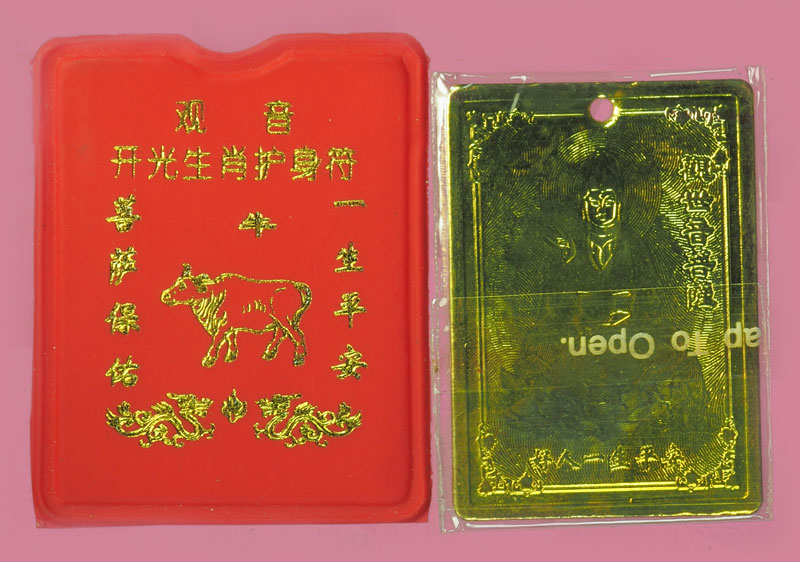 观 音
开光生肖护身符
牛
菩萨保佑
一生平安
觀世音菩薩
ap To Open.
好人一生平安